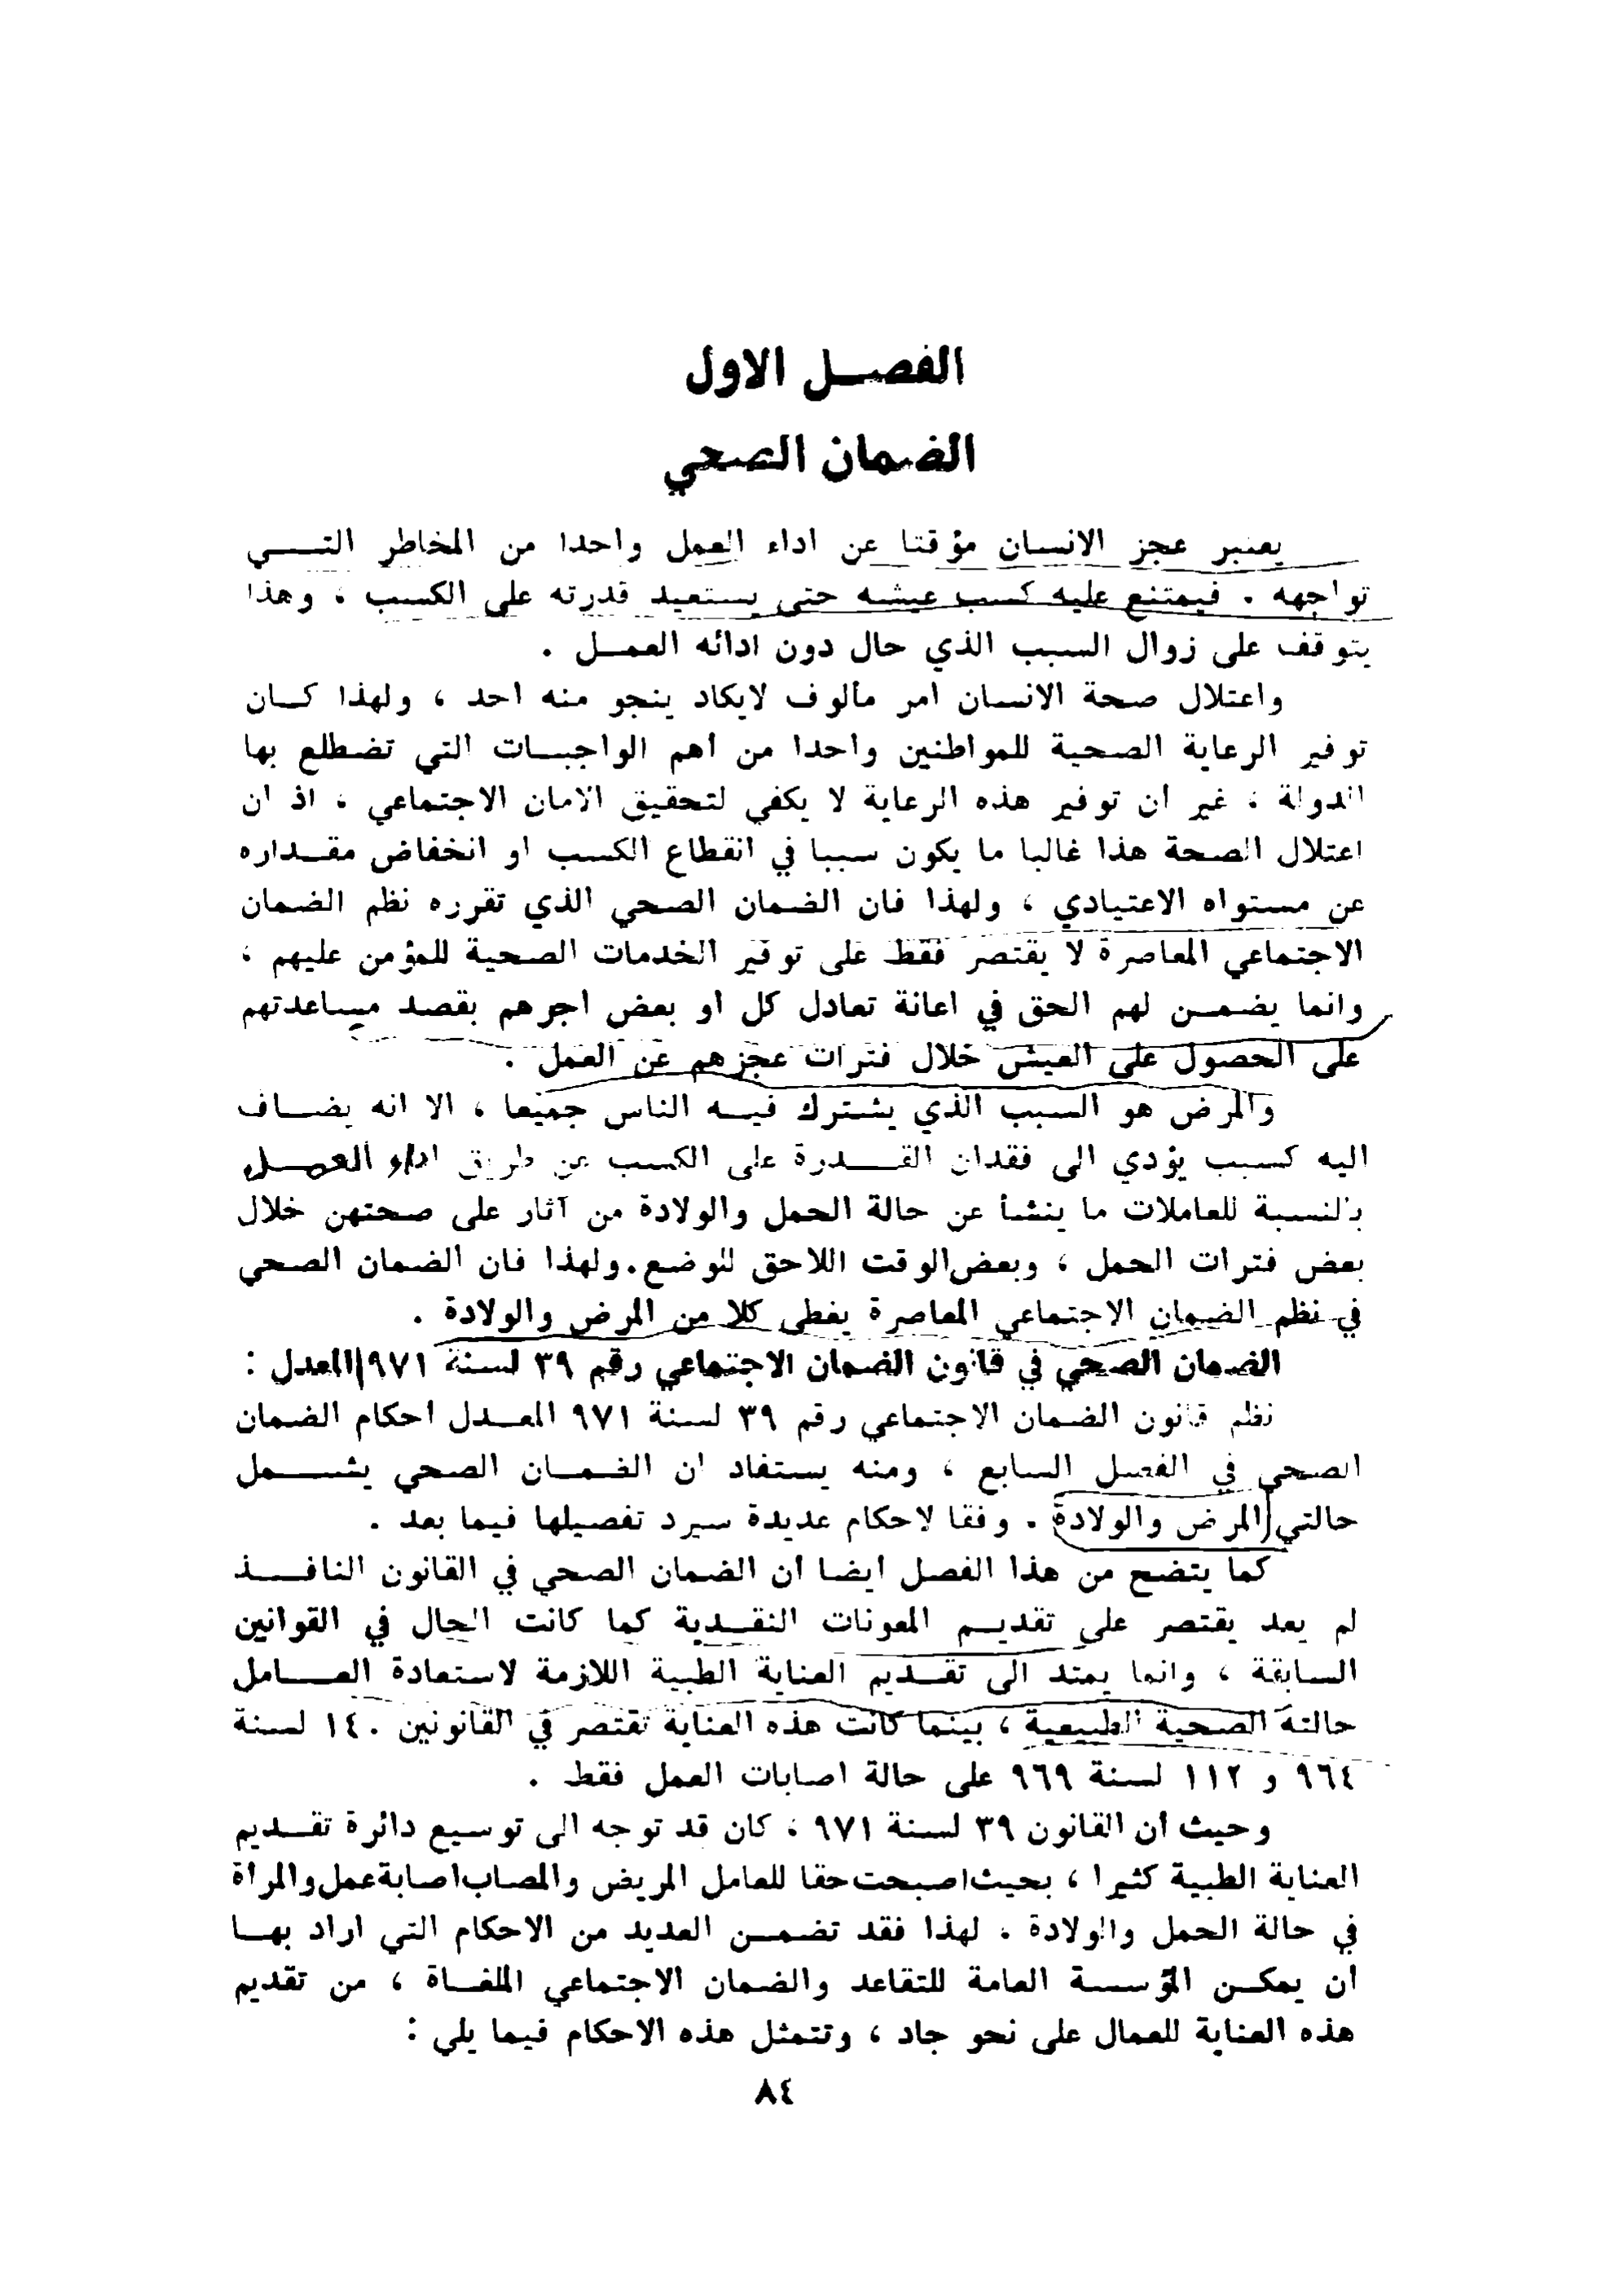 الفصل الاول
الضمان الصحي
يعتبر عجز الانسان مؤقتا عن اداء العمل واحدا من المخاطر التي
تواجهه . فيمتنع عليه كسب عيشه حتى يستعيد قدرته على الكسب ، وهذا
يتوقف على زوال السبب الذي حال دون ادائه العمل .
واعتلال صحة الانسان امر مألوف لايكاد ينجو منه احد ، ولهذا كان
توفير الرعاية الصحية للمواطنين واحدا من أهم الواجبات التي تضطلع بها
الدولة ، غير ان توفير هذه الرعاية لا يكفي لتحقيق الامان الاجتماعي ، اذ ان
اعتلال الصحة هذا غالبا ما يكون سببا في انقطاع الكسب او انخفاض مقداره
عن مستواه الاعتيادي ، ولهذا فان الضمان الصحي الذي تقرره نظم الضمان
الاجتماعي المعاصرة لا يقتصر فقط على توفير الخدمات الصحية للمؤمن عليهم ،
وانما يضمن لهم الحق في اعانة تعادل كل او بعض اجرهم بقصد مساعدتهم
على الحصول على العيش خلال فترات عجزهم عن العمل .
والمرض هو السبب الذي يشترك فيه الناس جميعا ، الا انه يضاف
اليه كسبب يؤدي الى فقدان القدرة على الكسب عن طريق اداء العمل
بالنسبة للعاملات ما ينشأ عن حالة الحمل والولادة من آثار على صحتهن خلال
بعض فترات الحمل ، وبعض الوقت اللاحق للوضع . ولهذا فان الضمان الصحي
في نظم الضمان الاجتماعي المعاصرة يغطي كلا من المرض والولادة .
الضمان الصحي في قانون الضمان الاجتماعي رقم ٣٩ لسنة ٩٧١ المعدل :
نظم قانون الضمان الاجتماعي رقم ٣٩ لسنة ٩٧١ المعدل احكام الضمان
الصحي في الفصل السابع ، ومنه يستفاد ان الضمان الصحي يشمل
حالتي المرض والولادة . وفقا لاحكام عديدة سيرد تفصيلها فيما بعد .
كما يتضح من هذا الفصل ايضا ان الضمان الصحي في القانون النافذ
لم يعد يقتصر على تقديم المعونات النقدية كما كانت الحال في القوانين
السابقة ، وانما يمتد الى تقديم العناية الطبية اللازمة لاستعادة العامل
حالته الصحية الطبيعية ، بينما كانت هذه العناية تقتصر في القانونين ١٤٠ لسنة
٩٦٤ و ١١٢ لسنة ٩٦٩ على حالة اصابات العمل فقط .
وحيث أن القانون ٣٩ لسنة ٩٧١ ، كان قد توجه الى توسيع دائرة تقديم
العناية الطبية كثيرا ، بحيث اصبحت حقا للعامل المريض والمصاب اصابة عمل والمرأة
في حالة الحمل والولادة . لهذا فقد تضمن العديد من الاحكام التي اراد بها
أن يمكن المؤسسة العامة للتقاعد والضمان الاجتماعي الملغاة ، من تقديم
هذه العناية للعمال على نحو جاد ، وتتمثل هذه الاحكام فيما يلي :
٨٤